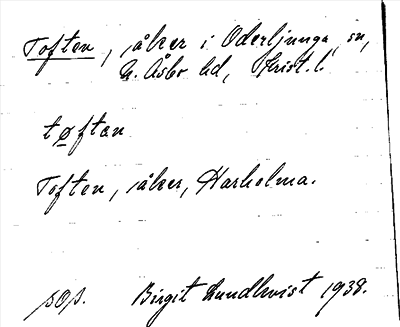 Toften, åker i Oderljunga sn,
N. Åsbo hd, Krist. l.
tøftan
Toften, åker, Harholma.
pop. Birgit Lundkvist 1938.